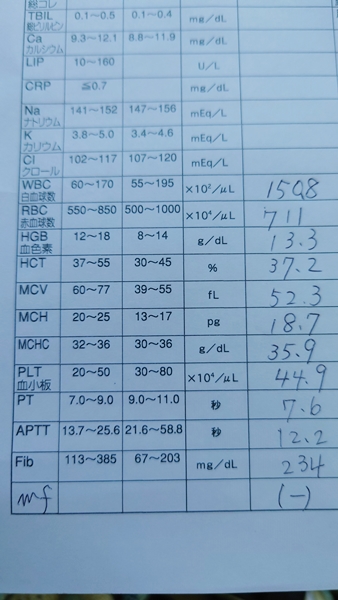 総コレ
TBIL 0.1〜0.5 0.1〜0.4 mg/dL
総ビリルビン
Ca 9.3〜12.1 8.8〜11.9 mg/dL
カルシウム
LIP 10〜160 U/L
CRP ≦0.7 mg/dL
Na 141〜152 147〜156 mEq/L
ナトリウム
K 3.8〜5.0 3.4〜4.6 mEq/L
カリウム
Cl 102〜117 107〜120 mEq/L
クロール
WBC 60〜170 55〜195 ×10²/μL 150.8
白血球数
RBC 550〜850 500〜1000 ×10⁴/μL 711
赤血球数
HGB 12〜18 8〜14 g/dL 13.3
血色素
HCT 37〜55 30〜45 % 37.2
MCV 60〜77 39〜55 fL 52.3
MCH 20〜25 13〜17 pg 18.7
MCHC 32〜36 30〜36 g/dL 35.9
PLT 20〜50 30〜80 ×10⁴/μL 44.9
血小板
PT 7.0〜9.0 9.0〜11.0 秒 7.6
APTT 13.7〜25.6 21.6〜58.8 秒 12.2
Fib 113〜385 67〜203 mg/dL 234
mf (−)